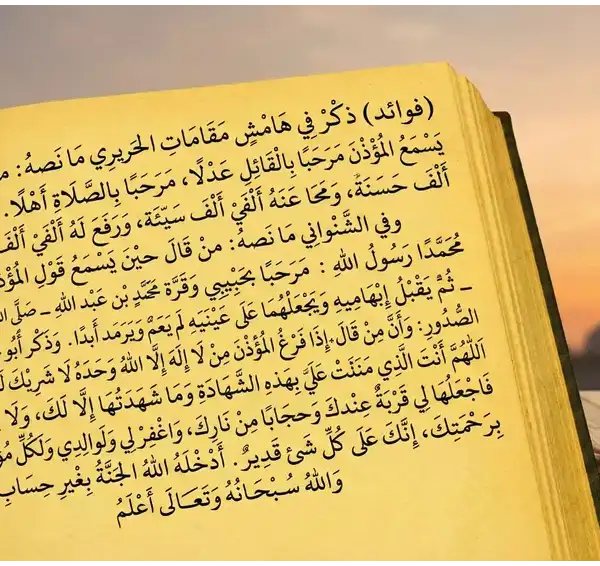 (فوائد) ذكْرْ فِي هَامْشٍ مَقَامَاتِ الحَريرِي مَا نَصهُ:
يَسْمَعُ المُؤْذْنَ مَرحَبًا بالْقَائِلِ عَدْلًا، مَرحَبًا بِالصَّلَاةِ أَهْلًا.
أَلْفَ حَسَنَةً، وَمَحَا عَنَهُ أَلْفَيْ أَلْفَ سَيِّئَة، وَرَفَعَ لَهُ أَلْفَيْ أَلْفَ
وفي الشَّنْوانِي مَا نَصهُ: مِنْ قَالَ حيْنَ يَسْمَعُ قَوْلِ المُؤْذ
مُحَمَّدًا رَسُولُ اللهِ : مَرحَبًا بِحَبِيْبِي وَقرَّة مُحَمَّدٍ بْنِ عَبْد اللهِ ـ صَلَّى
ـ ثُمَّ يَقبْلُ إِبْهَامِيهِ وَيَجعَلْهُمَا عَلَى عَيْنَيْه لَمْ يَعمْ وَيَرمَد أَبدًا. وَذَكَر أَبُو
الصُّدُورِ: وَأَنَّ مِنْ قَالَ إِذَا فَرْغُ المُؤْذْنَ مِنْ لَا إِلَهَ إِلَّا اللهُ وَحْدَهُ لَا شَرِيْكَ
اَللَّهُمَّ أَنْتَ الَّذِي مَنَنْتَ عَلَيَّ بِهَذِهِ الشَّهَادَةِ وَمَا شَهِدَتُهَا إِلَّا لَكَ، وَلَا
فَاجْعَلْهَا لِي قَرْبَةٌ عِنْدكَ وَحجَابًا مِنْ نَارِكَ، وَاغْفرْ لِي وَلوَالِدِي وَلكُلِّ
بِرَحْمَتِكَ، إِنَّكَ عَلَى كُلِّ شَئ قَدِيرٌ. أَدْخَلَهُ اللهُ الْجَنَّةُ بِغْيرِ حِسَاب
وَاللهُ سُبْحَانُهُ وَتَعَالَى أَعْلَمُ